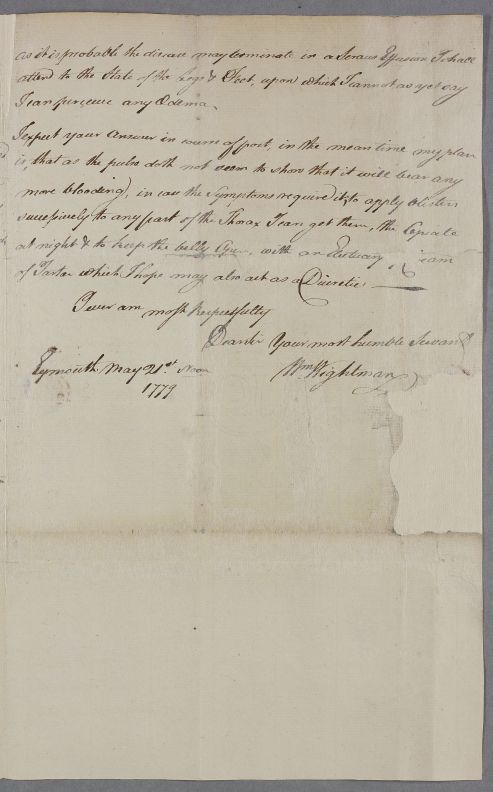 as it is probable the disease may terminate in a Serous Effusion I shall
attend to the State of the Legs & Feet, upon which I cannot as yet say
I can perceive any Œdema.
I expect your Answer in course of post, in the mean time my plan
is, that as the pulse doth not seem to show that it will bear any
more blooding, in case the Symptoms require it, to apply blisters
successively to any part of the Thorax I can get them, the Opiate
at night & to keep the belly Open, with an Electuary
of Tartar which I hope may also act as a Diuretic.
I ever am most respectfully
Dear Sir Your most humble Servant
Eymouth May 21st Noon
1779
Wm Wightman